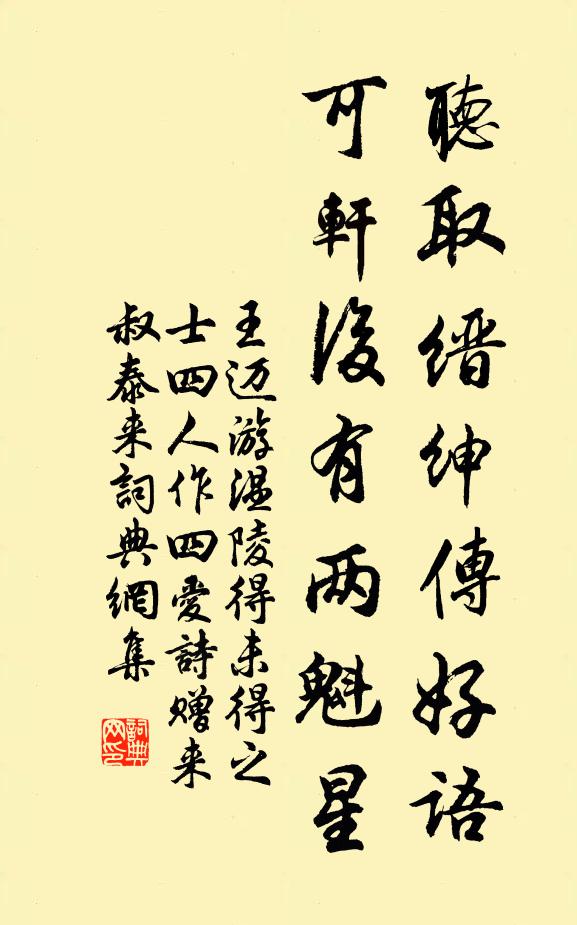 聽取缙紳傳好語
可軒後有兩魁星
王迈游溫陵得未得之
士四人作四愛詩赠来
叔泰来詞典網集
詞典网印